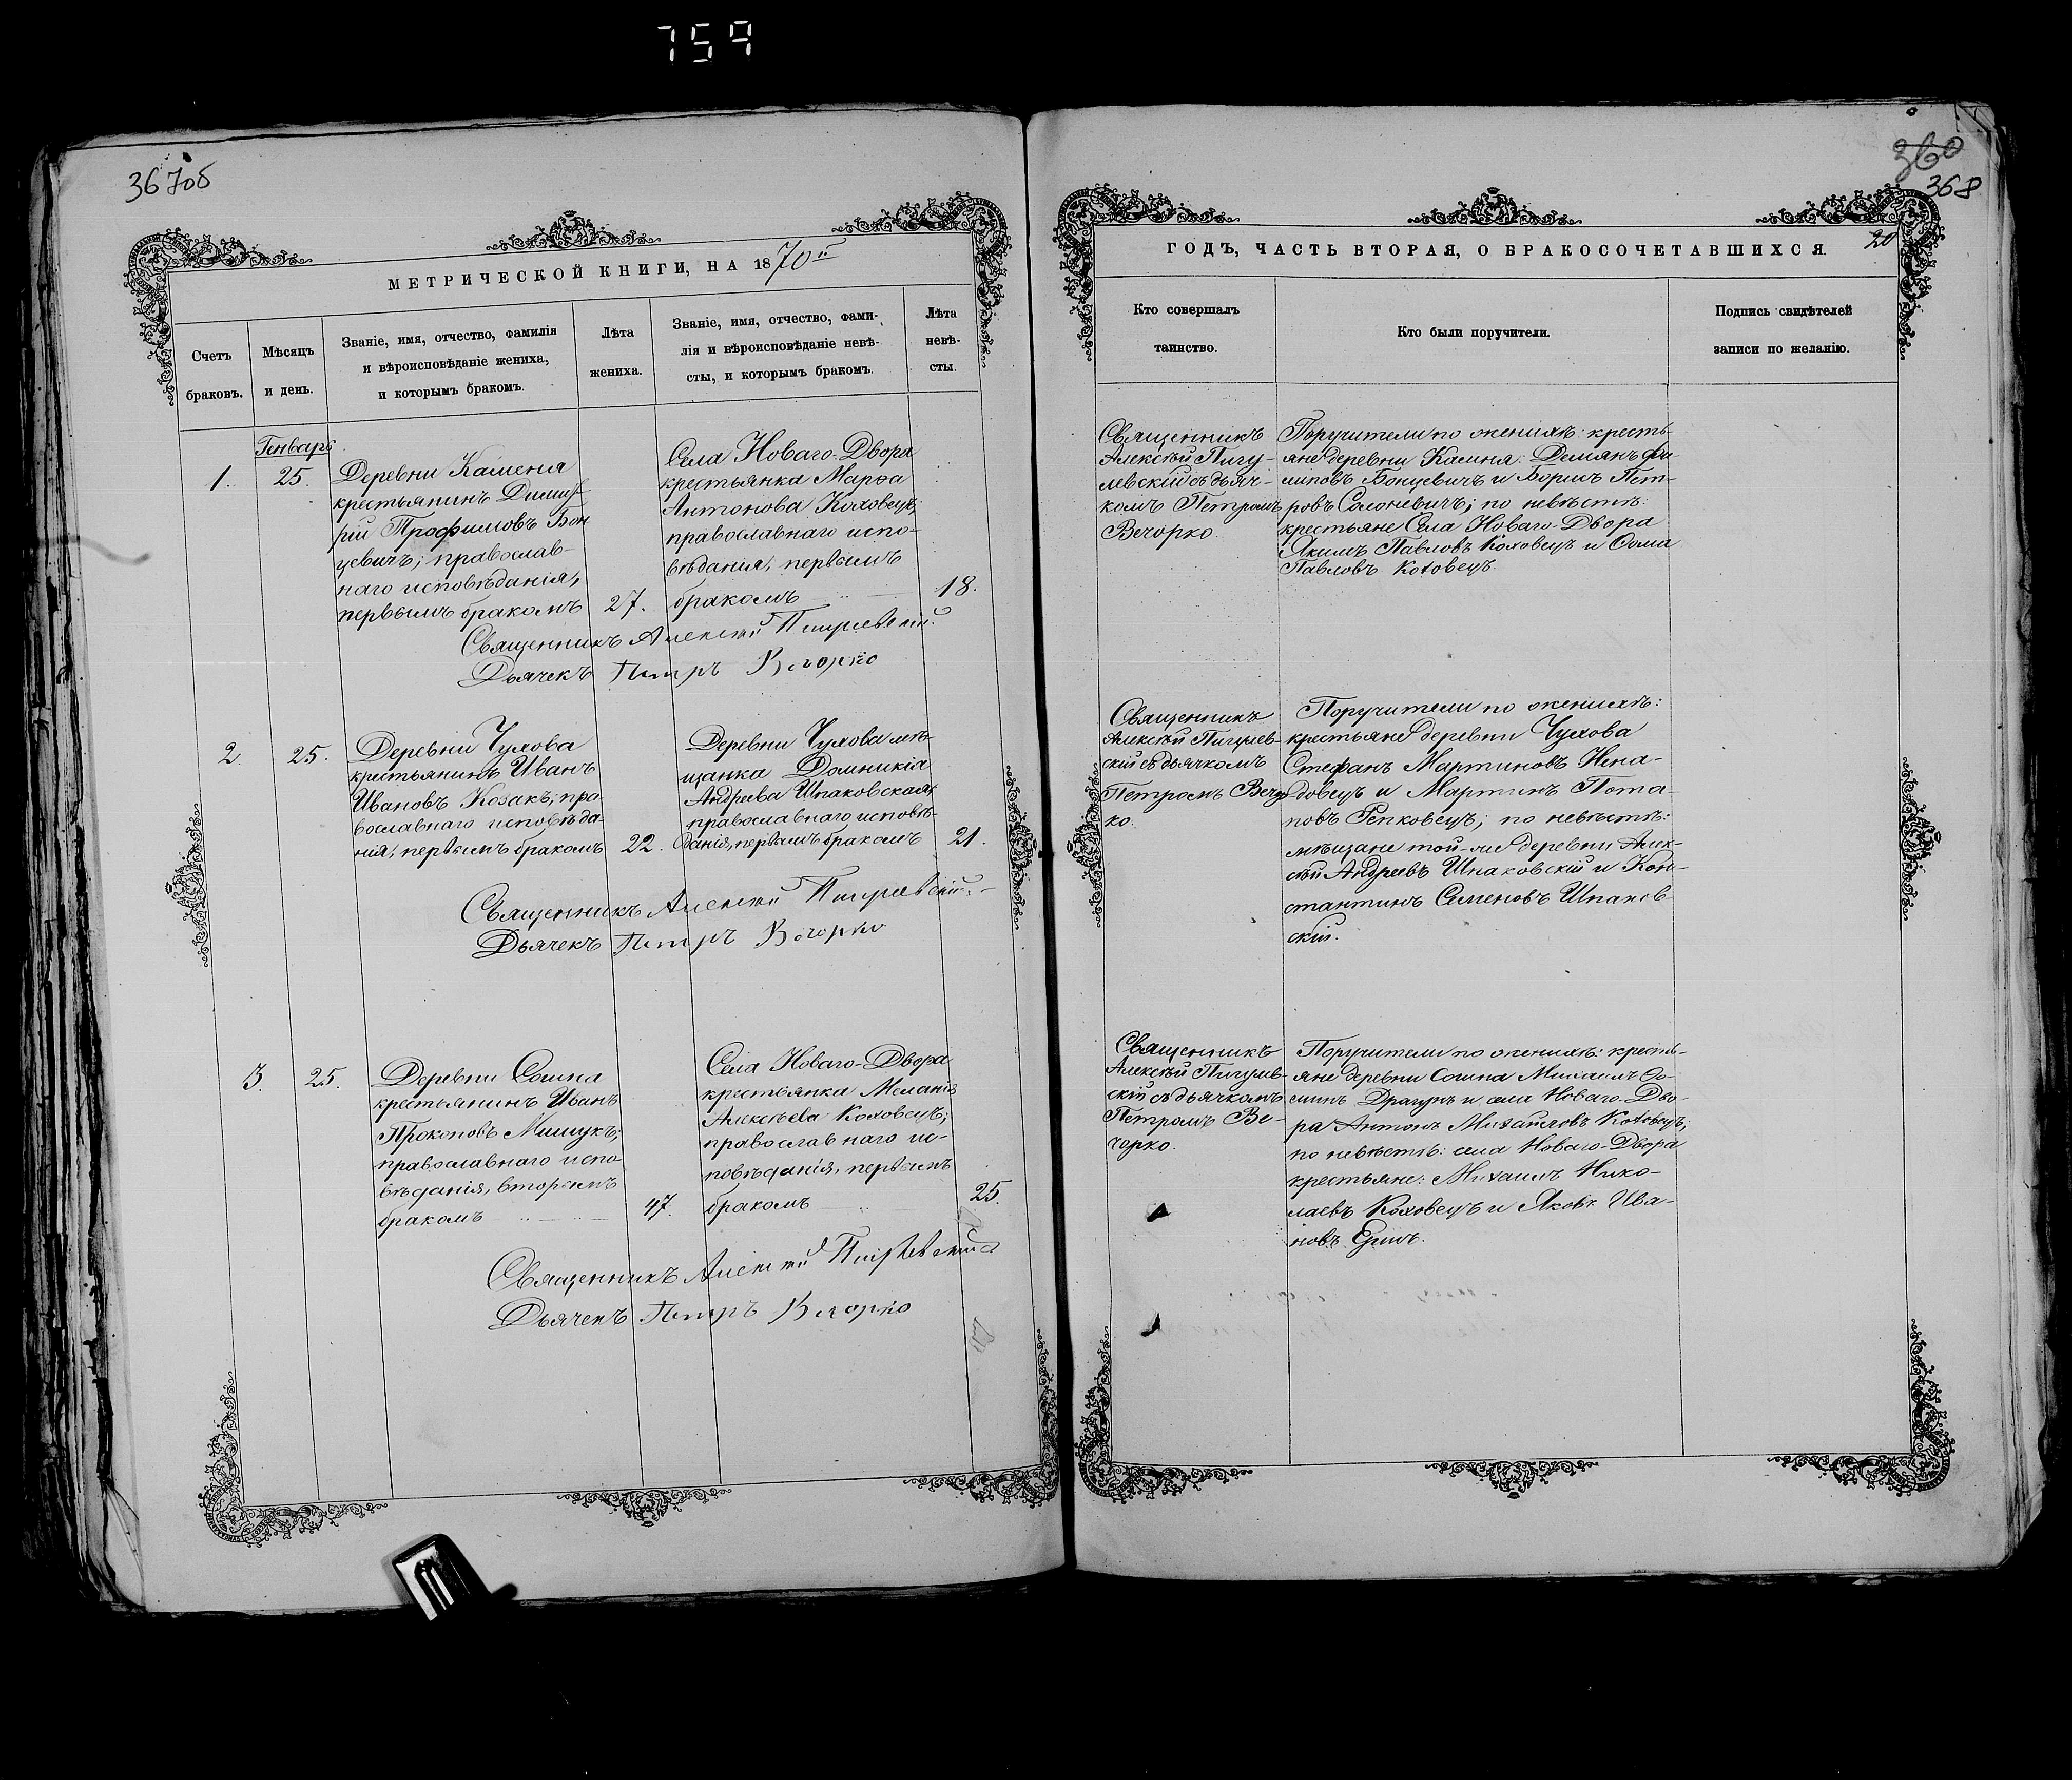 759
367об
360
368
20
МЕТРИЧЕСКОЙ КНИГИ, НА 1870й
Счетъ браковъ.
Мѣсяцъ и день.
Званіе, имя, отчество, фамилія
и вѣроисповѣданіе жениха,
и которымъ бракомъ.
Лѣта жениха.
Званіе, имя, отчество, фами-
лія и вѣроисповѣданіе невѣ-
сты, и которымъ бракомъ.
Лѣта невѣ-сты.
Генварь
1.
25.
Деревни Каменя
крестьянинъ Димит-
рій Трофимовъ Бон
цевичъ; православ-
наго исповѣданія,
первымъ бракомъ
27.
Села Новаго-Двора
крестьянка Марѳа
Антонова Коховецъ;
православнаго испо-
вѣданія, первымъ
бракомъ
18.
Священникъ Алексѣй Пигулевскій.
Дьячекъ Петръ Вечорко
2.
25.
Деревни Чухова
крестьянинъ Иванъ
Ивановъ Козакъ; пра
вославнаго исповѣда-
нія, первымъ бракомъ
22.
Деревни Чухова мѣ-
щанка Домникія
Андреева Шпаковская,
православнаго исповѣ-
данія, первымъ бракомъ
21.
Священникъ Алексѣй Пигулевскій.
Дьячекъ Петръ Вечорко
3.
25.
Деревни Сошна
крестьянинъ Иванъ
Прокоповъ Мишукъ;
православнаго испо
вѣданія, вторымъ
бракомъ
47.
Села Новаго-Двора
крестьянка Меланія
Алексѣева Коховецъ;
православнаго ис-
повѣданія, первымъ
бракомъ
25.
Священникъ Алексѣй Пигулевскій
Дьячекъ Петръ Вечорко
ГОДЪ, ЧАСТЬ ВТОРАЯ, О БРАКОСОЧЕТАВШИХСЯ.
Кто совершалъ
таинство.
Кто были поручители.
Подпись свидѣтелей
записи по желанію.
Священникъ
Алексѣй Пигу-
левскій съ дьяч-
комъ Петромъ
Вечорко.
Поручители по женихѣ: кресть-
яне деревни Каменя: Демянъ Фи
липовъ Бонцевичъ и Борисъ Пет-
ровъ Солоневичъ; по невѣстѣ:
крестьяне Села Новаго-Двора
Якимъ Павловъ Коховецъ и Ѳома
Павловъ Коховецъ.
Священникъ
Алексѣй Пигулев-
скій съ дьячкомъ
Петромъ Вечор-
ко.
Поручители по женихѣ:
крестьяне деревни Чухова
Стефанъ Мартиновъ Нена-
довецъ и Мартинъ Пота-
повъ Репковецъ; по невѣстѣ:
мѣщане той-же деревни Алек-
сѣй Андреевъ Шпаковскій и Кон-
стантинъ Семеновъ Шпаков-
скій.
Священникъ
Алексѣй Пигулев-
скій съ дьячкомъ
Петромъ Ве-
чорко.
Поручители по женихѣ: кресть-
яне деревни Сошна Михаилъ Ѳо-
минъ Драгунъ и села Новаго-Дво-
ра Антонъ Михайловъ Коховецъ;
по невѣстѣ: села Новаго-Двора
крестьяне: Михаилъ Нико-
лаевъ Коховецъ и Яковъ Ива-
новъ Ершъ.